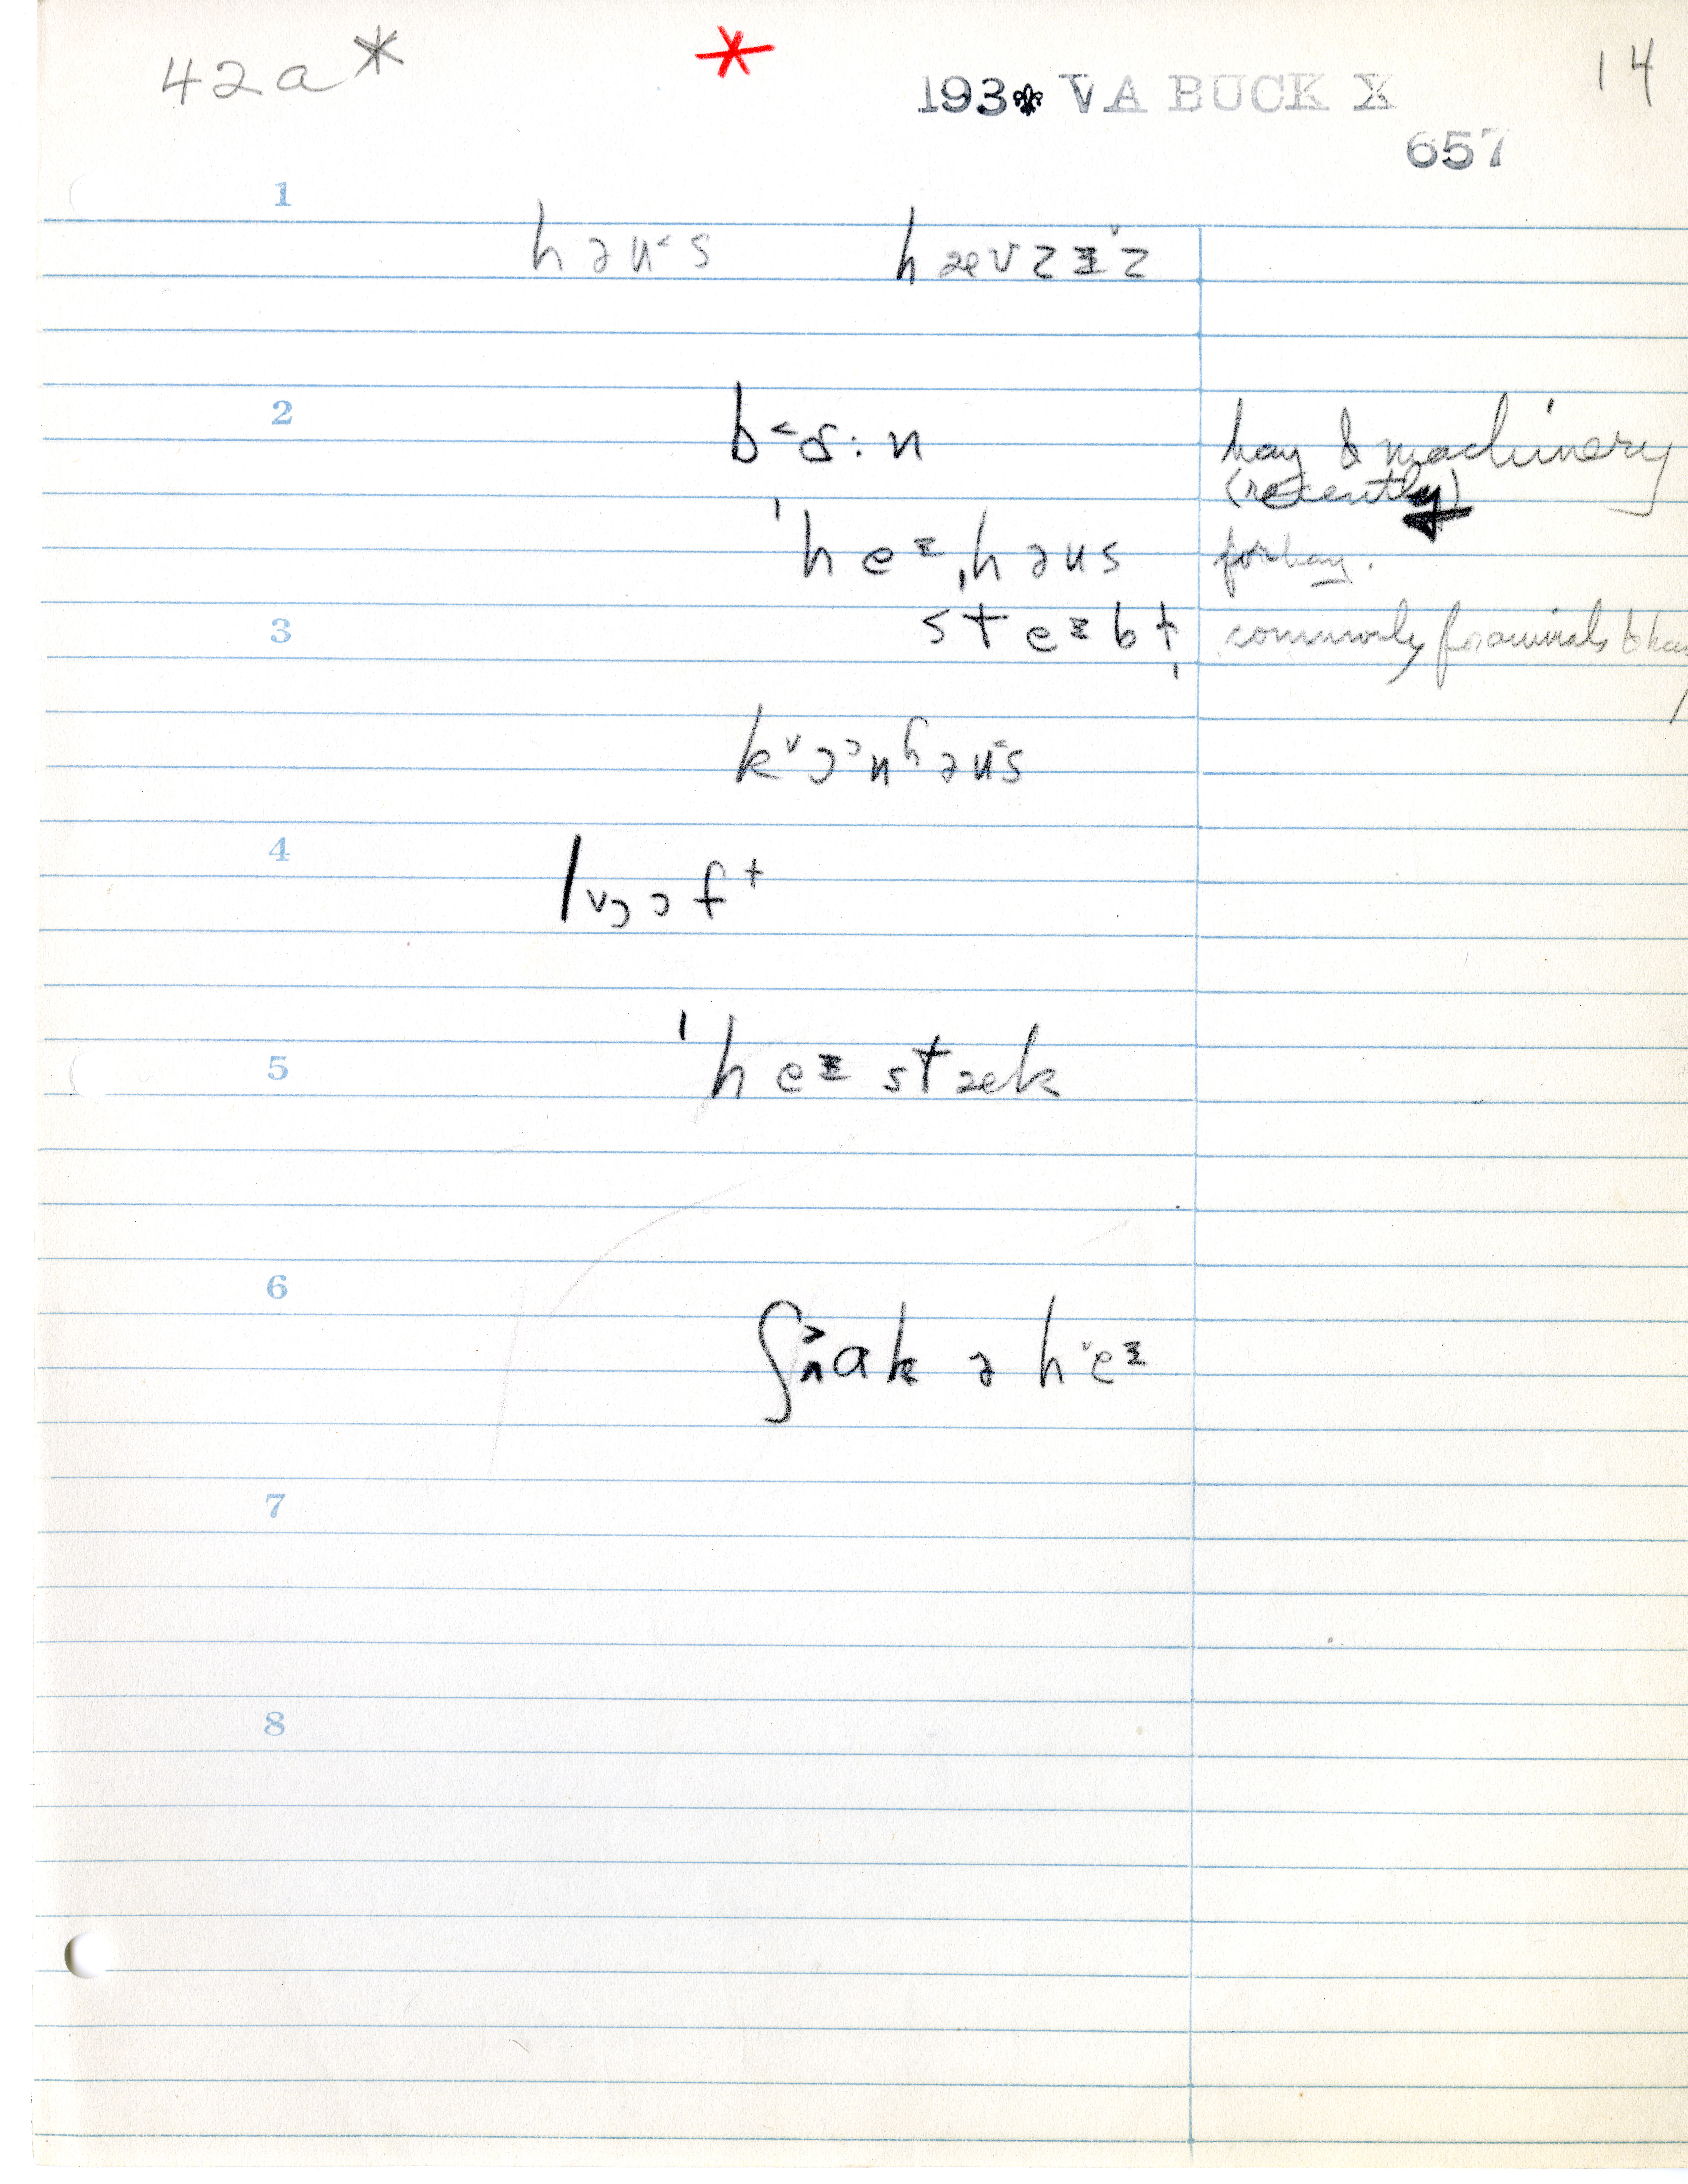 42a* * 14
193⚜ VA BUCK X
657
1
həu˂s hævzɪ˅z
2
b˂ɒ:n hay & machinery
(recently)
ˈheɪˌhəus for hay.
3
steɪbl̩ commonly for animals & hay
k˅ɔɔnhəu˂s
4
l˅ɔɔft
5
ˈheɪstæk
6
ʃ˃ʌak ə h˅eɪ
7
8